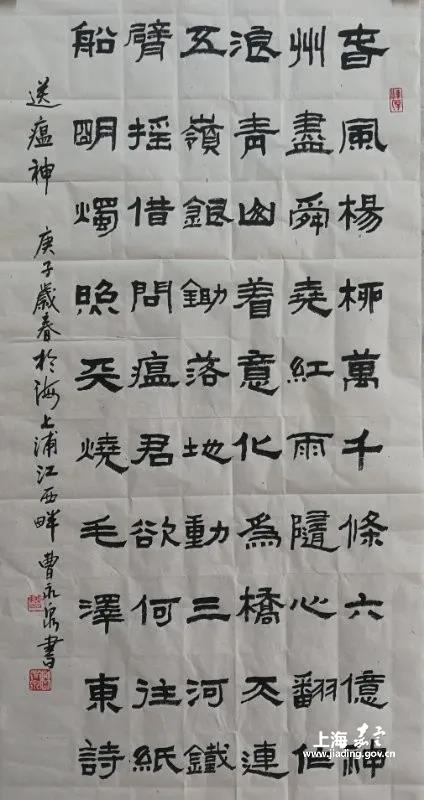 春風楊柳萬千條六億神
州盡舜堯紅雨隨心翻作
浪青山着意化為橋天連
五嶺銀鋤落地動三河鐵
臂搖借問瘟君欲何往紙
船明燭照天燒毛澤東詩
送瘟神 庚子歲春於海上浦江西畔曹永泉書
上海嘉定
www.jiading.gov.cn